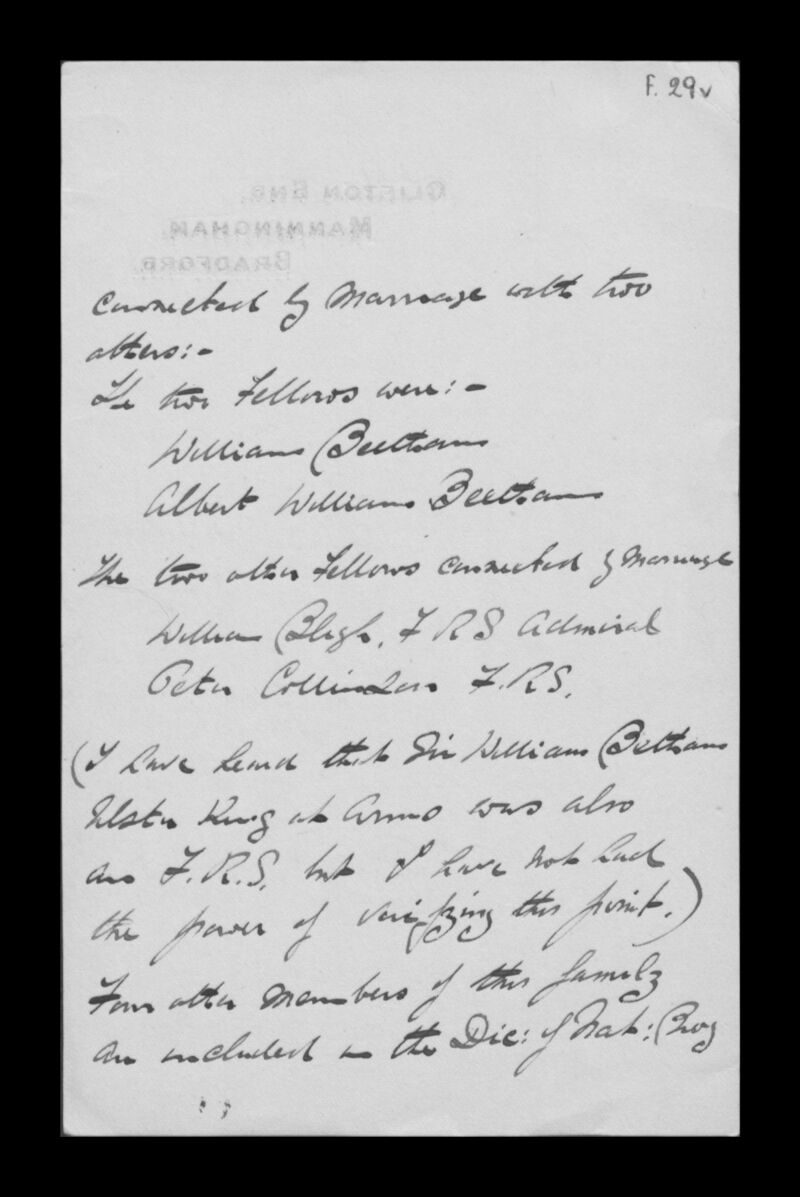 F. 29v
CLIFTON END.
MANNINGHAM.
BRADFORD.
Connected by Marriage with two
others:-
The two Fellows were:-
William Beetham
Albert William Beetham
The two other Fellows connected by Marriage
William Bligh, F R S Admiral
Peter Collinson F.R.S.
(I have heard that Sir William Betham
Ulster King at Arms was also
an F.R.S. but I have not had
the power of verifying this point.)
Four other members of this family
are included in the Dic: of Nat: Biog